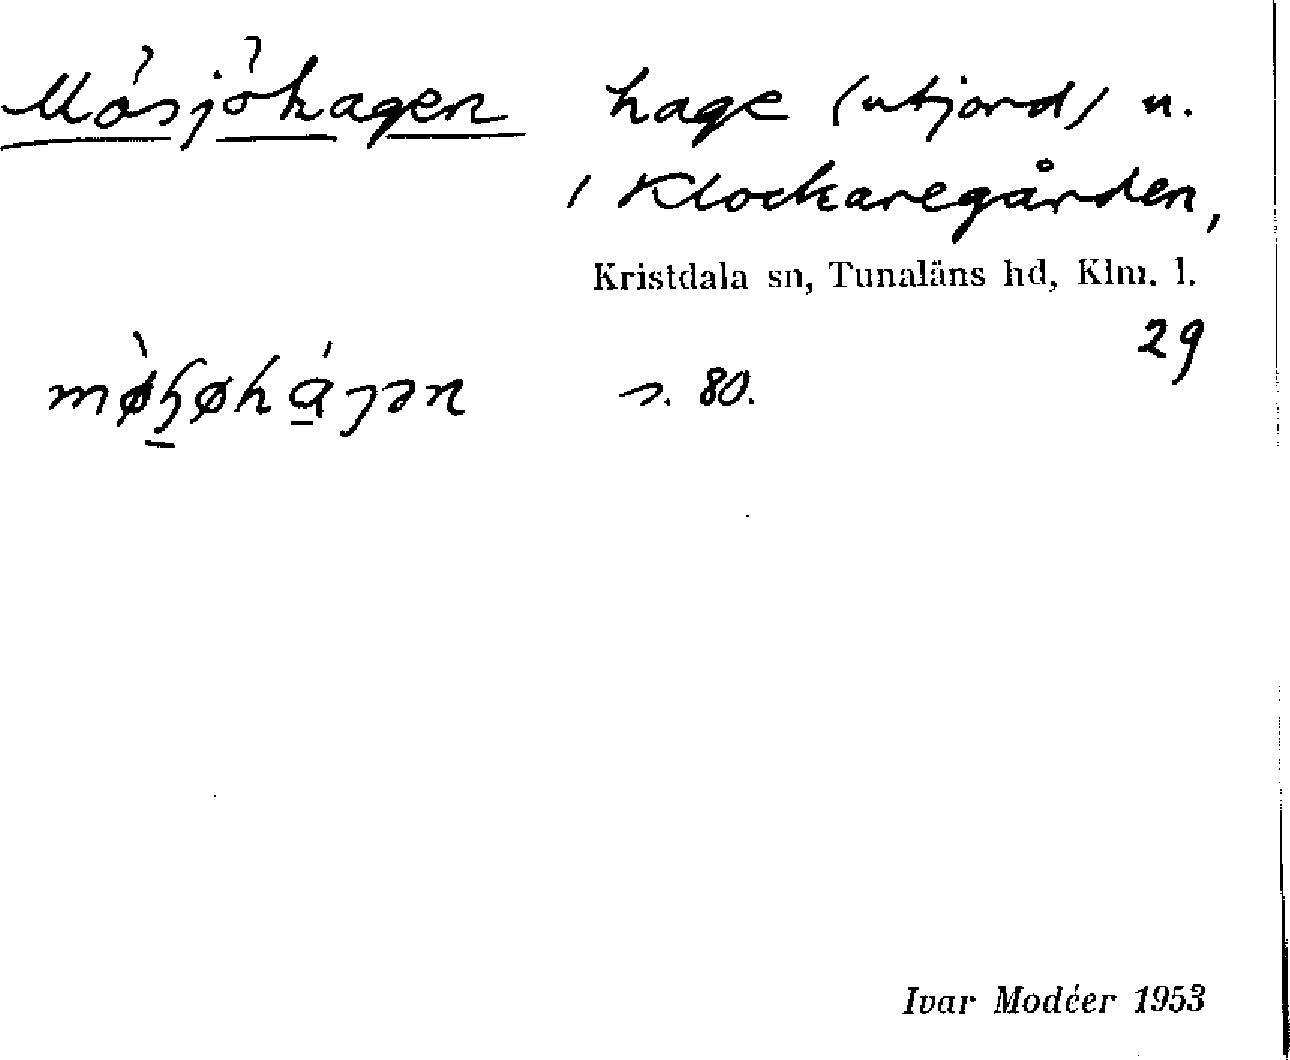 Mösjöhagen hage (utjord) u.
1 Klockaregården,
Kristdala sn, Tunaläns hd, Klm. l.
29
s. 80.
Ivar Modéer 1953